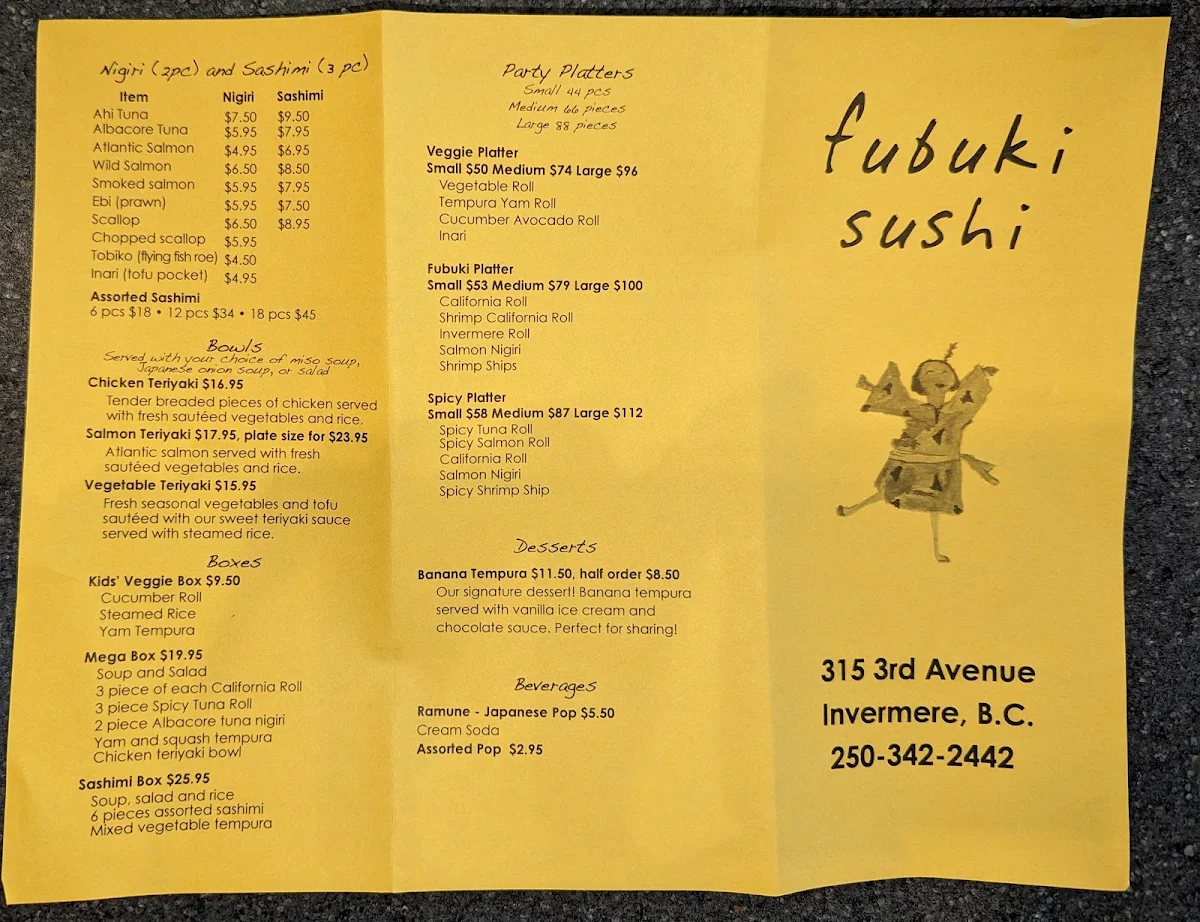 Nigiri (2pc) and Sashimi (3 pc)
Item Nigiri Sashimi
Ahi Tuna $7.50 $9.50
Albacore Tuna $5.95 $7.95
Atlantic Salmon $4.95 $6.95
Wild Salmon $6.50 $8.50
Smoked salmon $5.95 $7.95
Ebi (prawn) $5.95 $7.50
Scallop $6.50 $8.95
Chopped scallop $5.95
Tobiko (flying fish roe) $4.50
Inari (tofu pocket) $4.95
Assorted Sashimi
6 pcs $18 • 12 pcs $34 • 18 pcs $45
Bowls
Served with your choice of miso soup,
Japanese onion soup, or salad
Chicken Teriyaki $16.95
Tender breaded pieces of chicken served
with fresh sautéed vegetables and rice.
Salmon Teriyaki $17.95, plate size for $23.95
Atlantic salmon served with fresh
sautéed vegetables and rice.
Vegetable Teriyaki $15.95
Fresh seasonal vegetables and tofu
sautéed with our sweet teriyaki sauce
served with steamed rice.
Boxes
Kids' Veggie Box $9.50
Cucumber Roll
Steamed Rice
Yam Tempura
Mega Box $19.95
Soup and Salad
3 piece of each California Roll
3 piece Spicy Tuna Roll
2 piece Albacore tuna nigiri
Yam and squash tempura
Chicken teriyaki bowl
Sashimi Box $25.95
Soup, salad and rice
6 pieces assorted sashimi
Mixed vegetable tempura
Party Platters
Small 44 pcs
Medium 66 pieces
Large 88 pieces
Veggie Platter
Small $50 Medium $74 Large $96
Vegetable Roll
Tempura Yam Roll
Cucumber Avocado Roll
Inari
Fubuki Platter
Small $53 Medium $79 Large $100
California Roll
Shrimp California Roll
Invermere Roll
Salmon Nigiri
Shrimp Ships
Spicy Platter
Small $58 Medium $87 Large $112
Spicy Tuna Roll
Spicy Salmon Roll
California Roll
Salmon Nigiri
Spicy Shrimp Ship
Desserts
Banana Tempura $11.50, half order $8.50
Our signature dessert! Banana tempura
served with vanilla ice cream and
chocolate sauce. Perfect for sharing!
Beverages
Ramune - Japanese Pop $5.50
Cream Soda
Assorted Pop $2.95
fubuki
sushi
315 3rd Avenue
Invermere, B.C.
250-342-2442